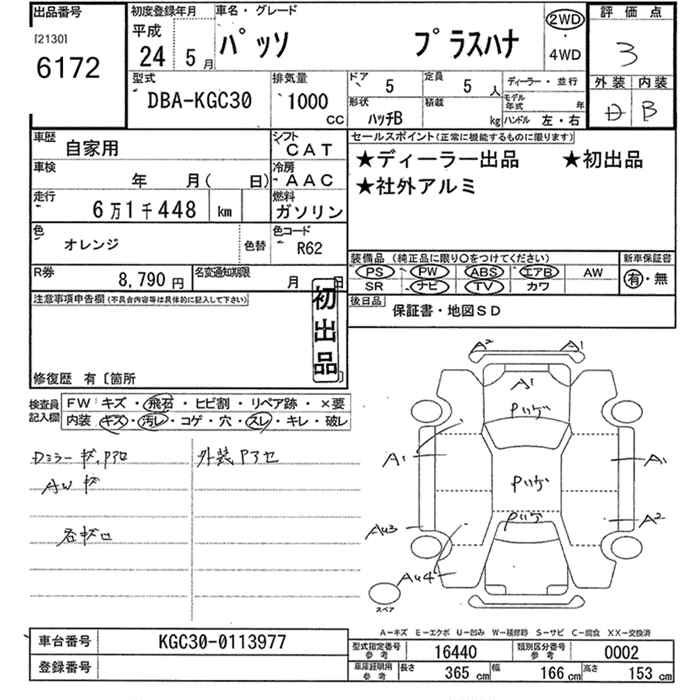 出品番号 初度登録年月 車名・グレード 評価点
[2130] 平成 パッソ プラスハナ 2WD 3
6172 24 5月 4WD
外装 内装
型式 排気量 ドア 5 定員 5人 ディーラー・並行
DBA-KGC30 1000 CC 形状 ハッチB 積載 kg モデル年式 年 B
ハンドル 左・右
車歴 自家用 シフト CAT セールスポイント(正常に機能するものに限ります)
★ディーラー出品 ★初出品
車検 年 月( 日) 冷房 AAC ★社外アルミ
走行 6万1千448 km 燃料 ガソリン
色 オレンジ 色替 色コード R62
装備品(純正品に限り○をつけてください) 新車保証書
R券 8,790円 名変通知期限 月 日 PS PW ABS エアB AW 有・無
SR ナビ TV カワ
注意事項申告欄(不具合内容等は具体的に記入して下さい) 初出品 後日品 保証書・地図SD
修復歴 有〔箇所 〕
検査員記入欄 FW キズ・飛石・ヒビ割・リペア跡・×要
内装 キズ・汚レ・コゲ・穴・スレ・キレ・破レ
A2 A1
A1
A1 A1
Au3 A2
Au4
外装
スペア
A-キズ E-エクボ U-凹み W-補修跡 S-サビ C-腐食 XX-交換済
車台番号 KGC30-0113977 型式指定番号 参考 16440 類別区分番号 参考 0002
登録番号 車庫証明用 参考 長さ 365 cm 幅 166 cm 高さ 153 cm